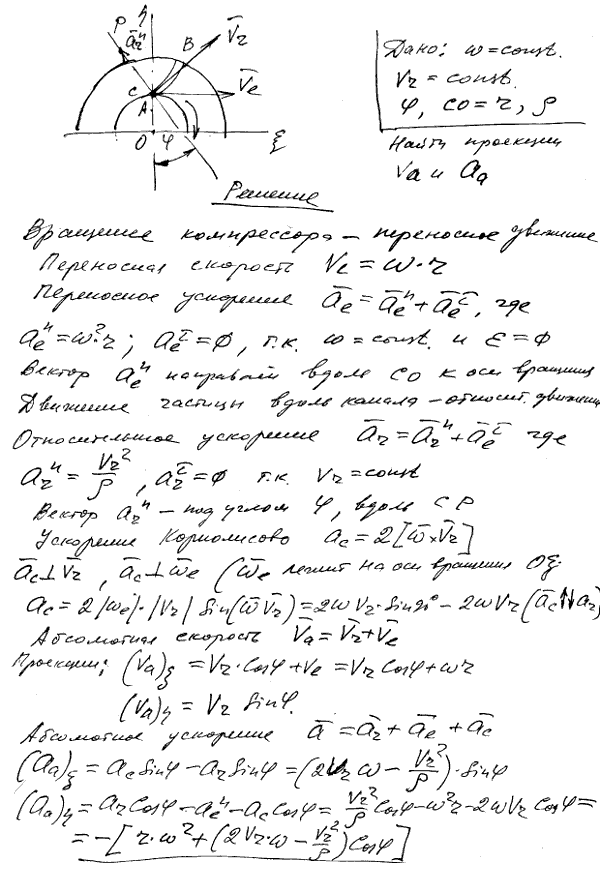 η
P
ā_r^n
B
V̄_r
V̄_e
C
A
O φ ξ
Дано: ω = const.
V_r = const.
φ, CO = r, ρ
Найти проекции
V_a и a_a
Решение
Вращение компрессора – переносное движение
Переносная скорость V_e = ω·r
Переносное ускорение ā_e = ā_e^n + ā_e^τ, где
a_e^n = ω²·r; a_e^τ = 0, т.к. ω = const. и ε = 0
Вектор a_e^n направлен вдоль CO к оси вращения
Движение частицы вдоль канала – относит. движение
Относительное ускорение ā_r = ā_r^n + ā_e^τ где
a_r^n = V_r²/ρ, a_r^τ = 0 т.к. V_r = const
Вектор a_r^n – под углом φ, вдоль CP
Ускорение Кориолисово a_c = 2[ω̄×V̄_r]
ā_c ⊥ V̄_r, ā_c ⊥ ω̄_e (ω̄_e лежит на оси вращения
a_c = 2|ω_e|·|V_r| sin(ω̄ V̄_r) = 2ωV_r·sin90° – 2ωV_r (ā_c ↑↓ a_r)
Абсолютная скорость V̄_a = V̄_r + V̄_e
Проекции: (V_a)_ξ = V_r·cosφ + V_e = V_r cosφ + ωr
(V_a)_η = V_r sinφ.
Абсолютное ускорение ā = ā_r + ā_e + ā_c
(a_a)_ξ = a_c sinφ – a_r sinφ = (2V_r ω – V_r²/ρ)·sinφ
(a_a)_η = a_r cosφ – a_e^n – a_c cosφ = V_r²/ρ cosφ – ω²r – 2ωV_r cosφ =
= –[r·ω² + (2V_r·ω – V_r²/ρ) cosφ]